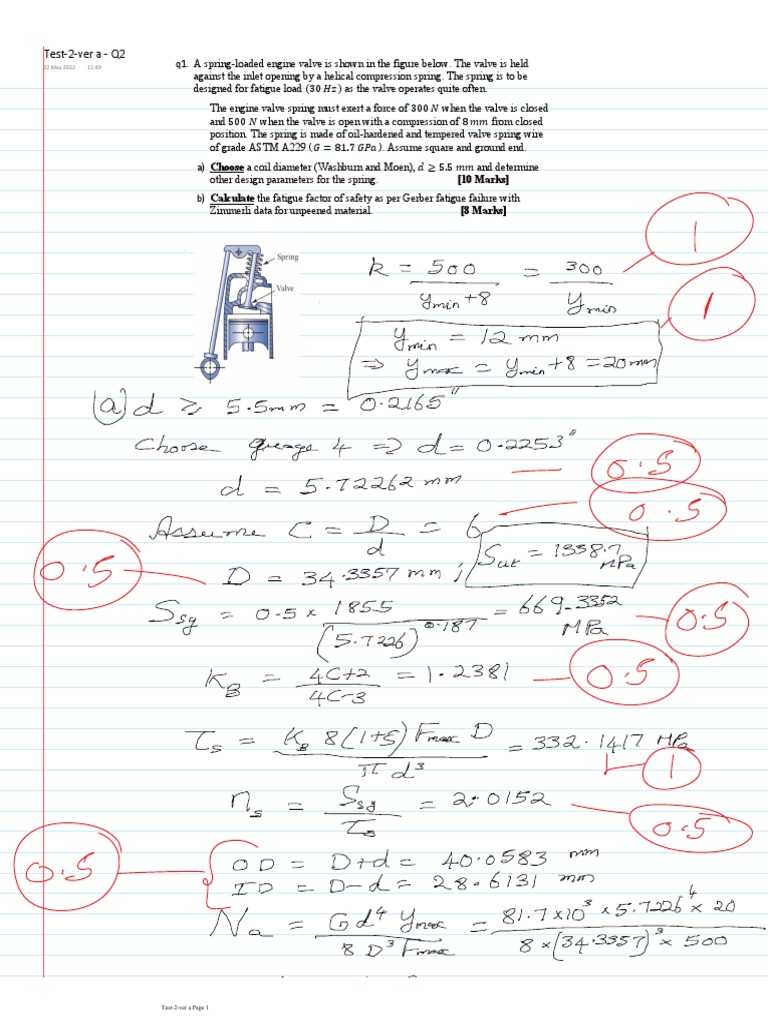 Test-2-ver a - Q2
22 May 2022 11:49
q1. A spring-loaded engine valve is shown in the figure below. The valve is held
against the inlet opening by a helical compression spring. The spring is to be
designed for fatigue load (30 Hz) as the valve operates quite often.
The engine valve spring must exert a force of 300 N when the valve is closed
and 500 N when the valve is open with a compression of 8 mm from closed
position. The spring is made of oil-hardened and tempered valve spring wire
of grade ASTM A229 (G = 81.7 GPa). Assume square and ground end.
a) Choose a coil diameter (Washburn and Moen), d ≥ 5.5 mm and determine
other design parameters for the spring. [10 Marks]
b) Calculate the fatigue factor of safety as per Gerber fatigue failure with
Zimmerli data for unpeened material. [8 Marks]
Spring
Valve
k = 500 / (ymin + 8) = 300 / ymin
1
ymin = 12 mm
1
⇒ ymax = ymin + 8 = 20 mm
(a) d ≥ 5.5mm = 0.2165"
Choose gauge 4 ⇒ d = 0.2253"
d = 5.72262 mm
0.5
Assume C = D/d = 6
0.5
D = 34.3357 mm ; Sut = 1338.7 MPa
0.5
Ssy = 0.5 × 1855 / (5.7226)^0.187 = 669.3352 MPa
0.5
KB = (4C+2) / (4C-3) = 1.2381
0.5
τs = KB 8(1+ξ) Fmax D / π d³ = 332.1417 MPa
1
ns = Ssy / τs = 2.0152
0.5
OD = D+d = 40.0583 mm
0.5
ID = D-d = 28.6131 mm
Na = G d⁴ ymax / 8 D³ Fmax = 81.7×10³ × 5.7226⁴ × 20 / 8 × (34.3357)³ × 500
Test-2-ver a Page 1